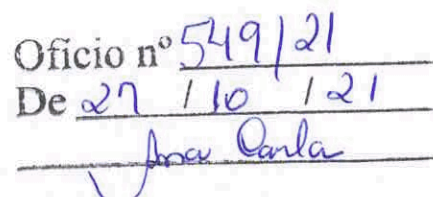 Oficio nº 549/21
De 27 / 10 / 21
Ana Carla